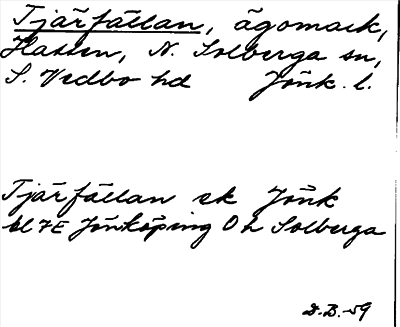 Tjärfällan, ägomark,
Hassen, N. Solberga sn,
S. Vedbo hd Jönk. l.
Tjärfällan ek Jönk
bl 7E Jönköping Ö h Solberga
D.B.-59